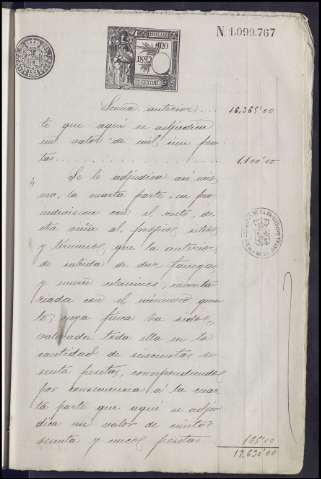 N. 1.099.767
Suma anterior 18,365'00
te que aqui se adjudica
un valor de mil, cien pese-
tas 1.100'00
Se le adjudica asi mis-
mo, la cuarta parte, en pro-
indivision con el resto, de
otra viña al propio sitio
y término, que la anterior,
de cabida de dos fanegas
y nueve celemines, inventa-
riada con el número qua-
to, cuya finca ha sido,
valorada toda ella en la
cantidad de seiscientas se-
senta pesetas, correspondiendo
por consecuencia a la cuar-
ta parte que aqui se adju-
dica un valor de ciento
senta y cinco pesetas 165'00
19,630'00